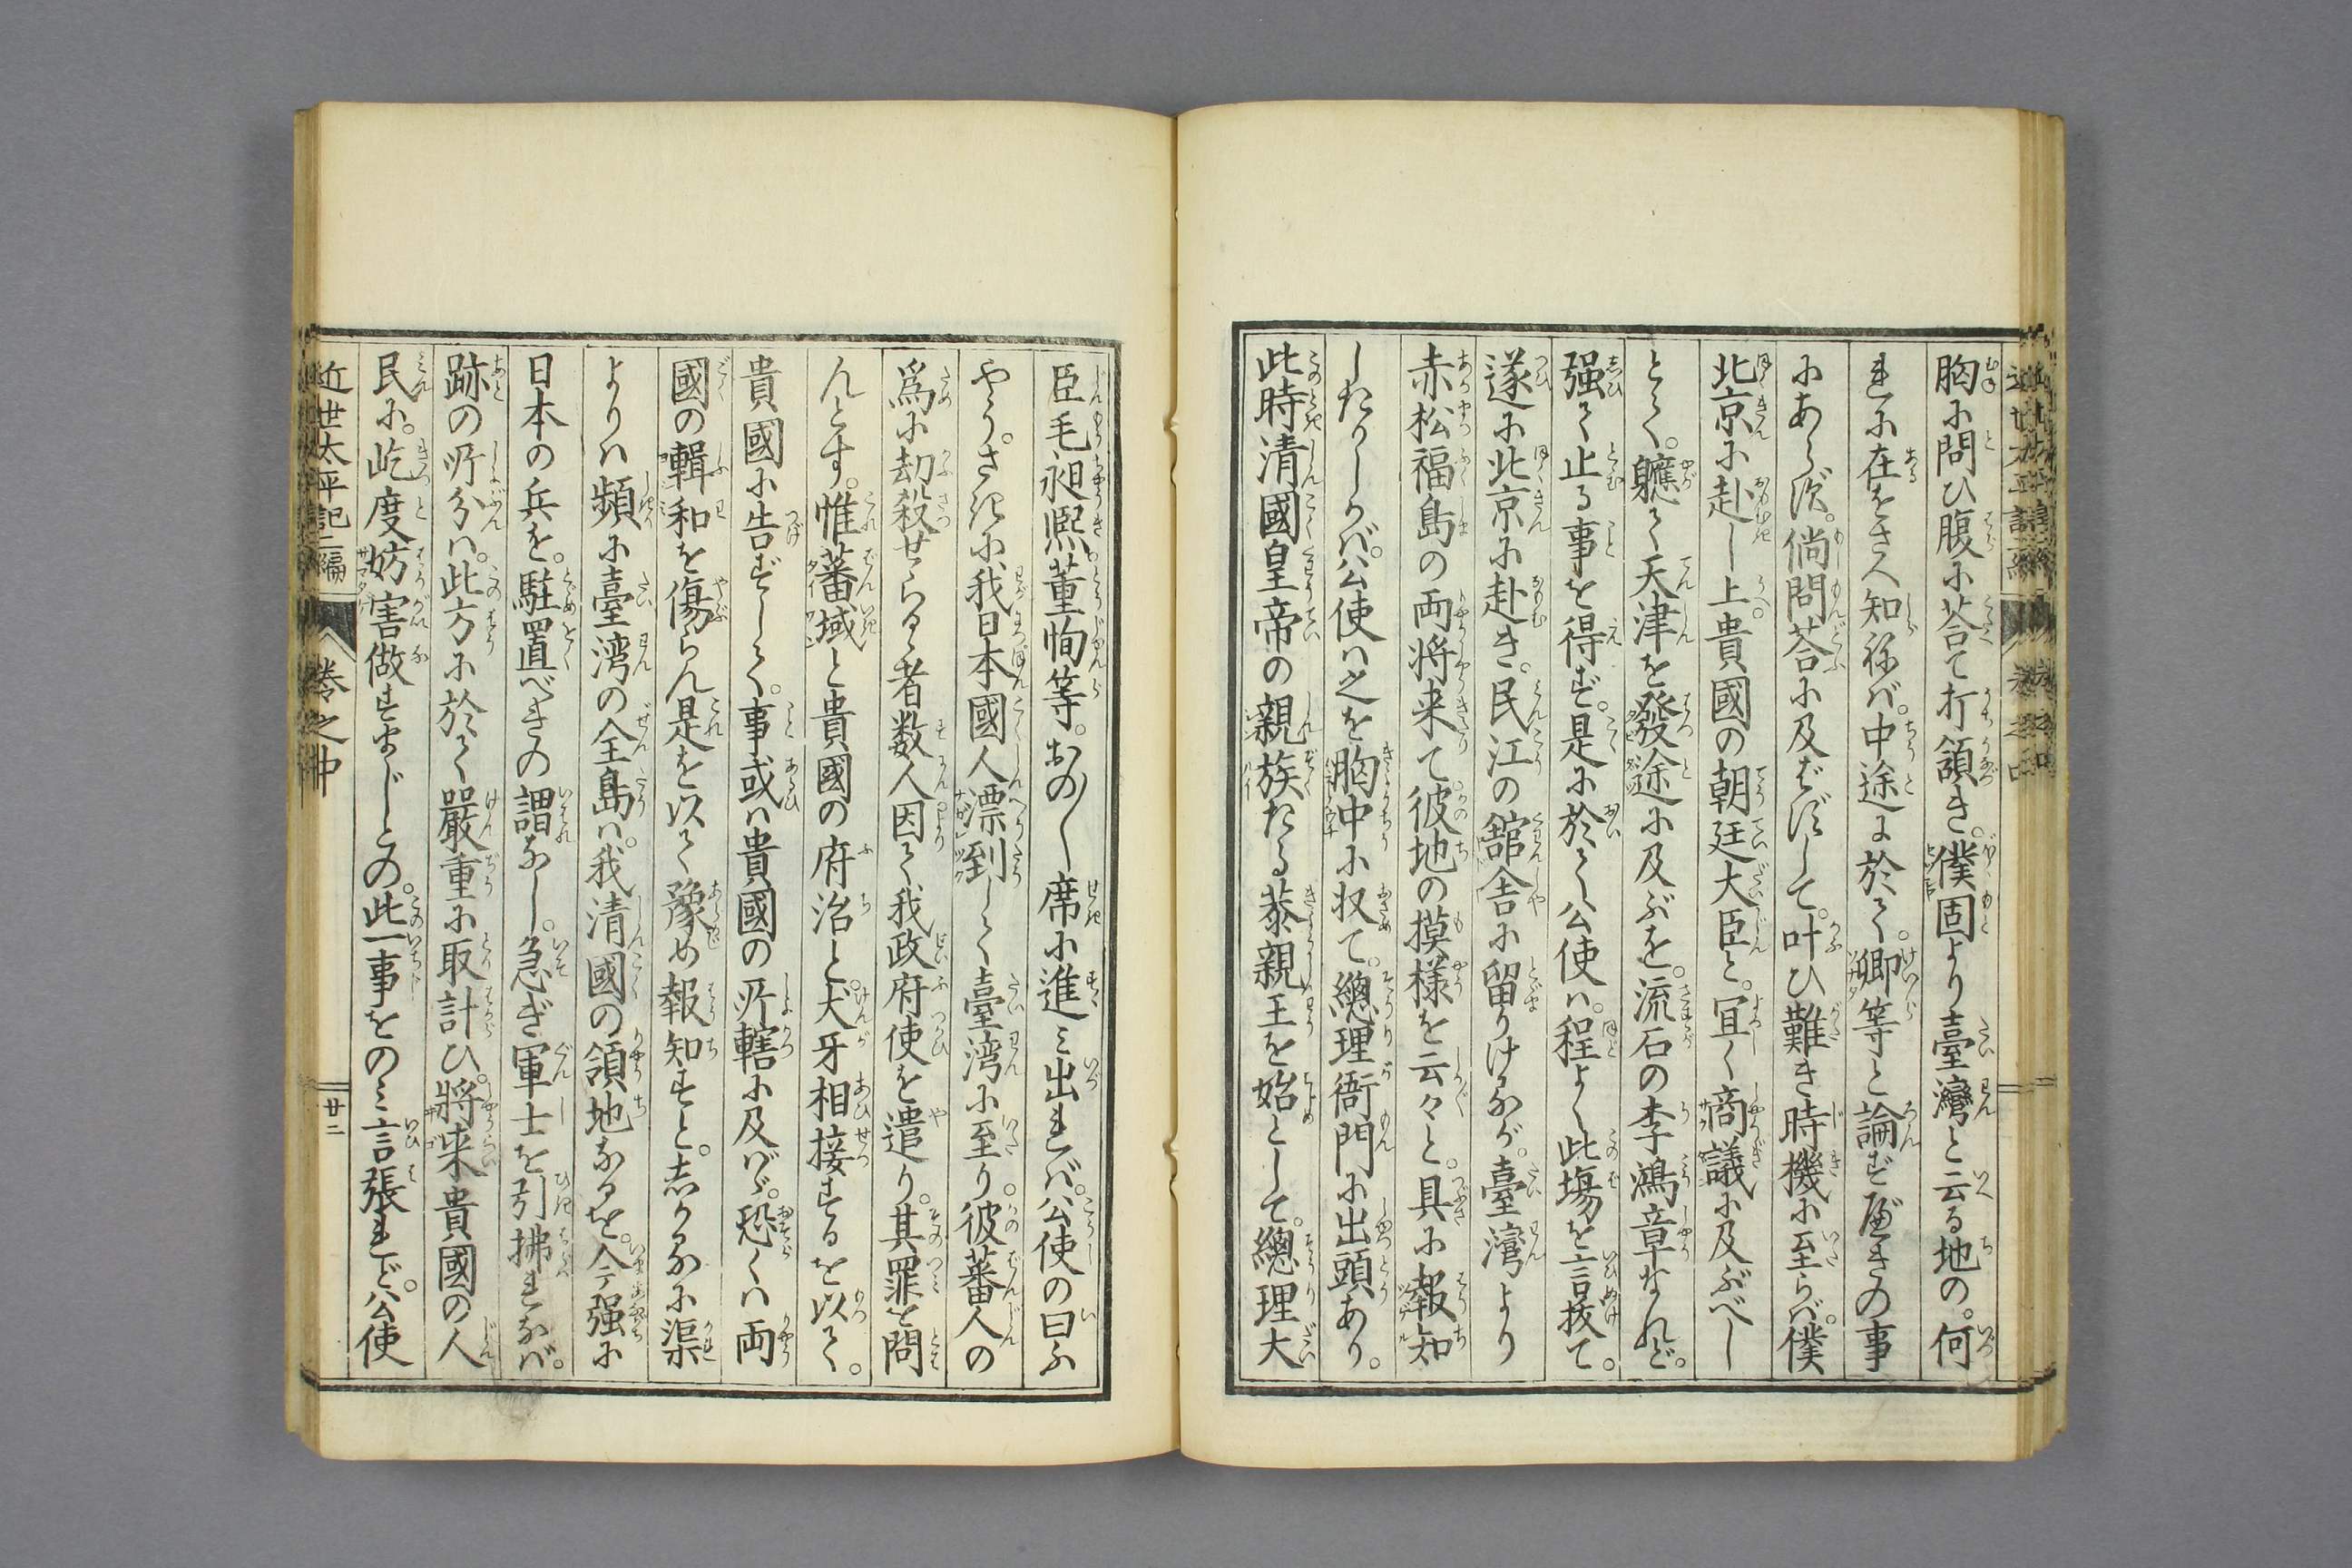 胸に問ひ腹に荅て打領き。僕固より臺灣と云る地の。何
れに在をさへ知ねバ。中途に於て。卿等と論ず べきの事
にあらず。倘問荅に及ばずして。叶ひ難き時機に至らバ。僕
北京に赴し上。貴國の朝廷大臣と。冝く商議に及ぶべし
とて。軈て天津を發途に及ぶを。流石の李鴻章なれど。
强て止る事を得ず。是に於て公使ハ。程よく此塲を言抜て。
遂に北京に赴き。民江の舘舎に留りけるが。臺灣より
赤松福島の両将来て彼地の摸様を云々と。具に報知
したりしかバ。公使ハ之を胸中に収て。總理衙門に出頭あり。
此時清國皇帝の親族たる恭親王を始として。總理大
臣毛昶熙董恂等。おの〳〵席に進ミ出れバ。公使の曰ふ
やう。さきに我日本國人漂到して臺湾に至り。彼蕃人の
爲に刧殺せらるゝ者数人因て我政府使を遣り。其罪を問
んとす。惟蕃域と貴國の府治と。犬牙相接するを以て。
貴國に告ずして。事或ハ貴國の所轄に及バゞ。恐くハ両
國の輯和を傷らん是を以て豫め報知すと。志かるに渠
よりハ頻に臺湾の全島ハ。我清國の領地なるを。今強に
日本の兵を。駐置べきの謂なし。急ぎ軍士を引拂れなバ。
跡の所分ハ。此方に於て嚴重に取計ひ。將来貴國の人
民に。屹度妨害做すまじとの。此一事をのミ言張れど。公使
近世太平記二編
卷之中
廿二